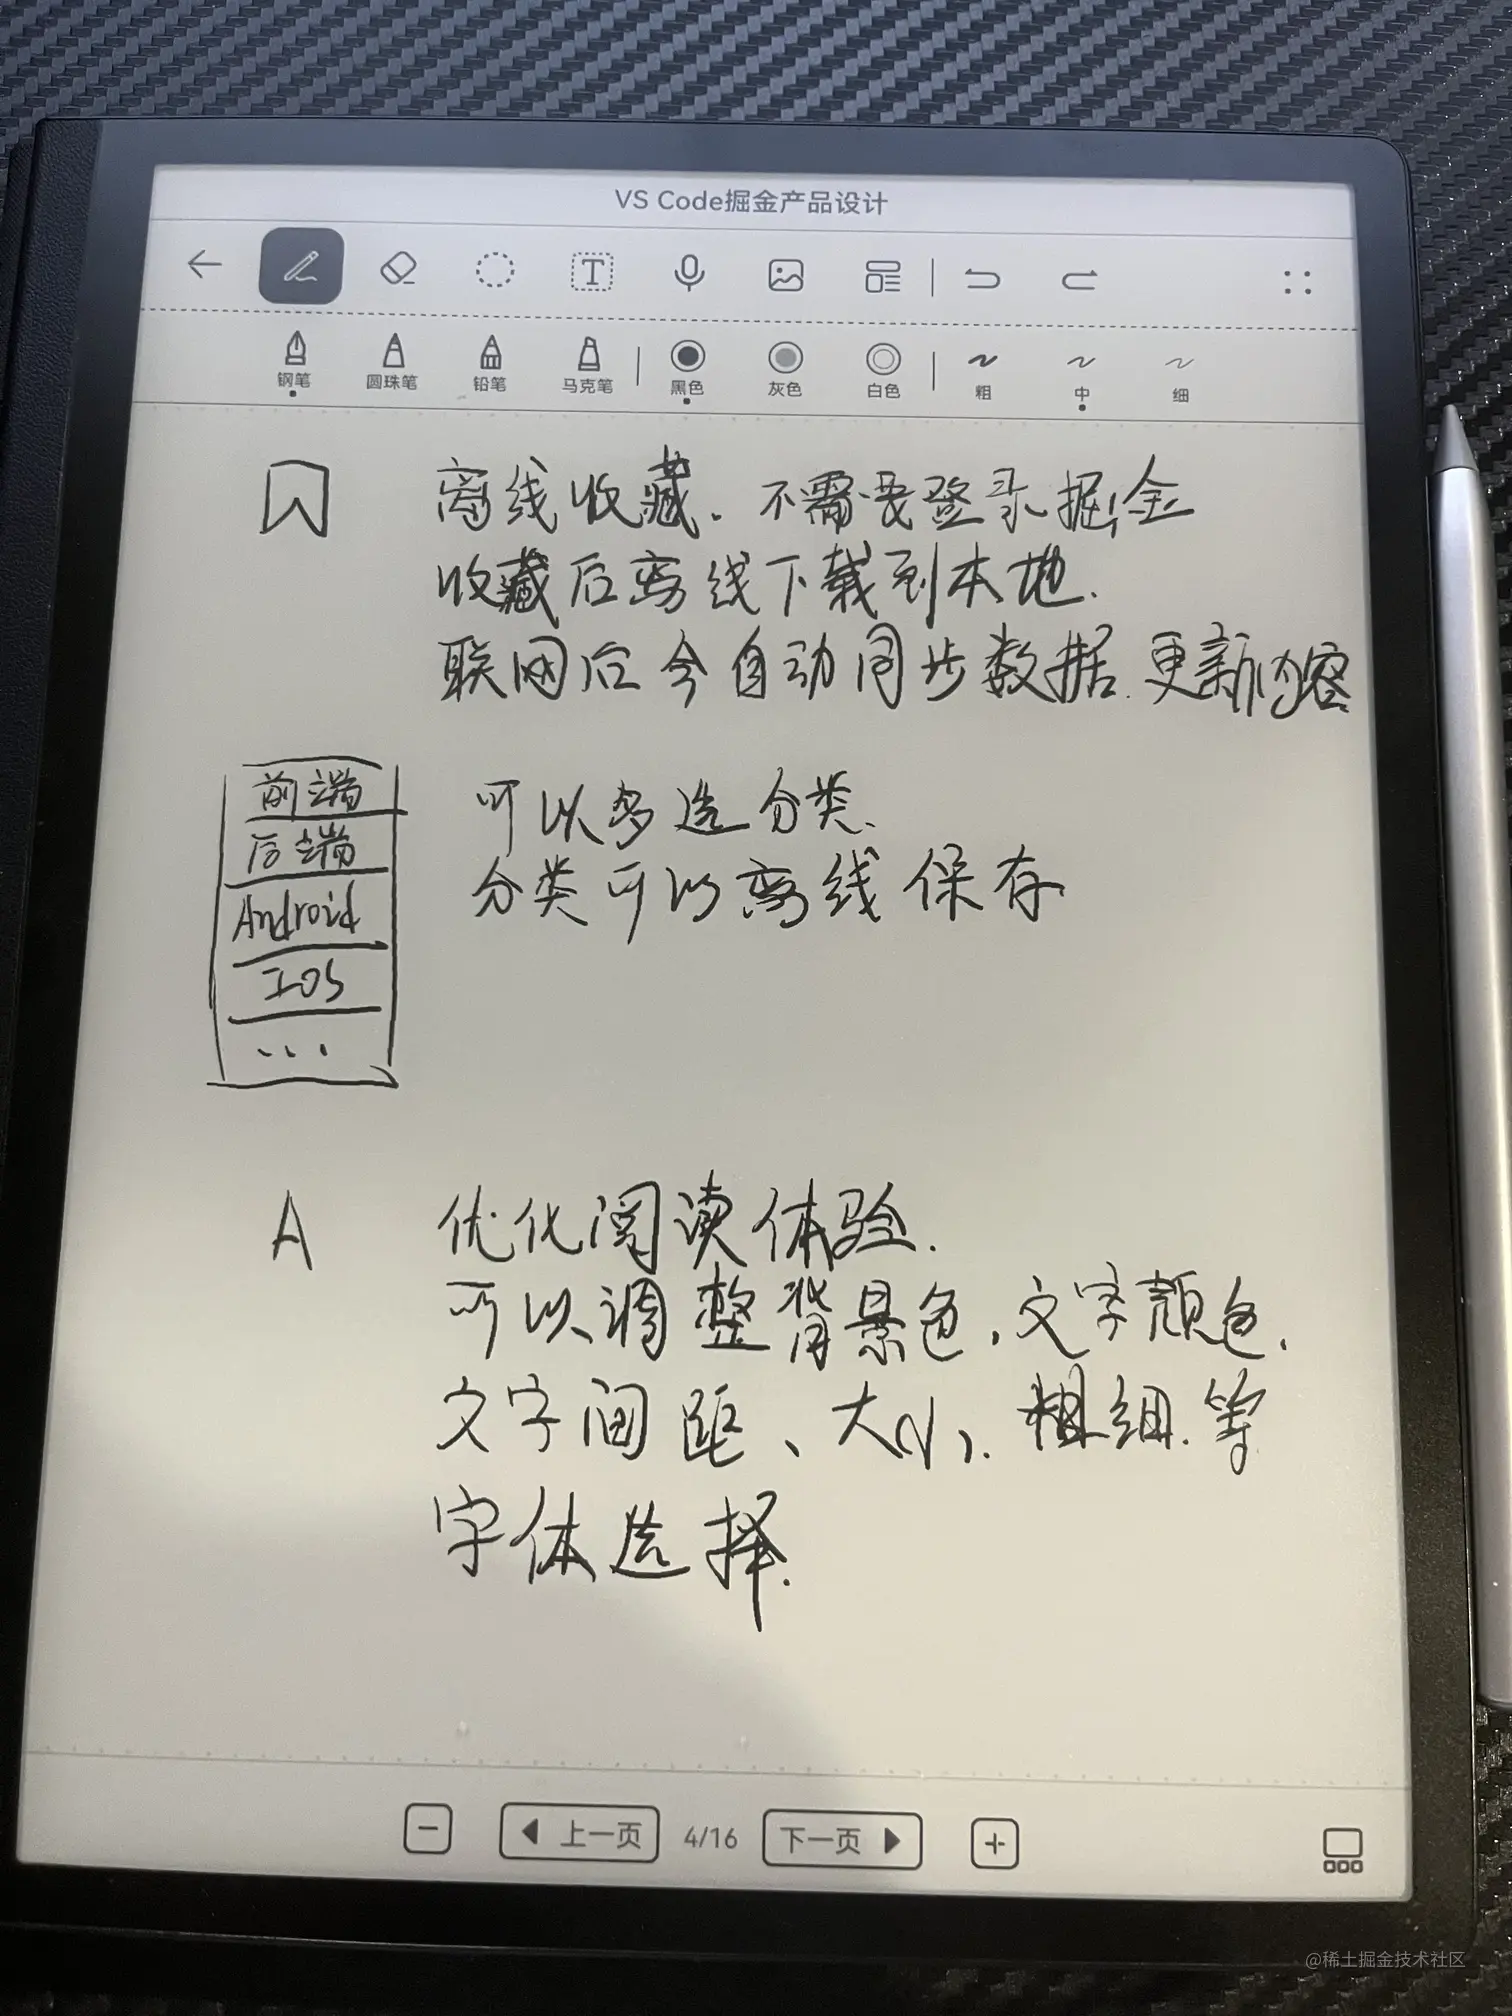 VS Code掘金产品设计
钢笔 圆珠笔 铅笔 马克笔 黑色 灰色 白色 粗 中 细
离线收藏. 不需要登录掘金
收藏后离线下载到本地.
联网后会自动同步数据.更新内容
前端
后端
Android
IOS
...
可以多选分类、
分类可以离线保存
A
优化阅读体验.
可以调整背景色,文字颜色,
文字间距、大小、粗细.等
字体选择.
上一页 4/16 下一页
@稀土掘金技术社区